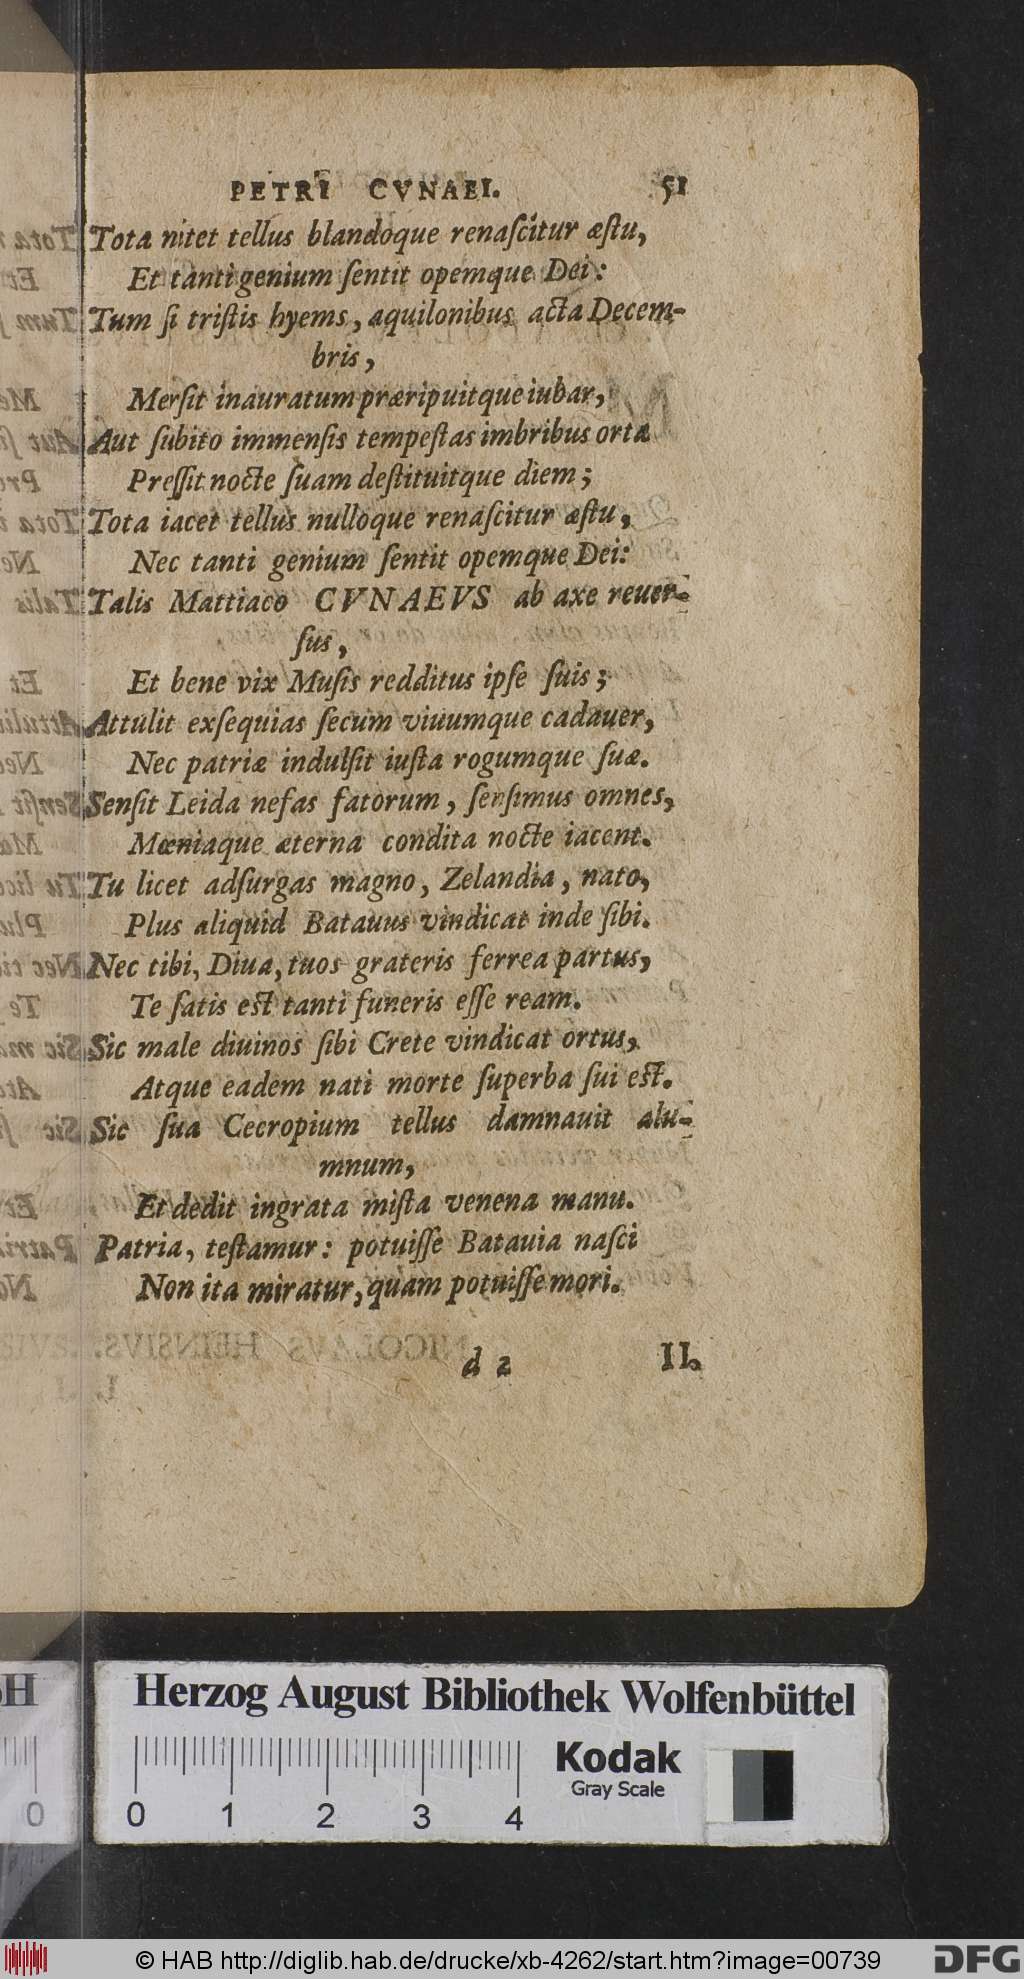 PETRI CVNAEI. 51
Tota nitet tellus blandoque renaſcitur æſtu,
Et tanti genium ſentit opemque Dei:
Tum ſi triſtis hyems, aquilonibus acta Decem-
bris,
Merſit inauratum præripuitque iubar,
Aut ſubito immenſis tempeſtas imbribus orta
Preſſit nocte ſuam deſtituitque diem;
Tota iacet tellus nulloque renaſcitur æſtu,
Nec tanti genium ſentit opemque Dei:
Talis Mattiaco CVNAEVS ab axe reuer-
ſus,
Et bene vix Muſis redditus ipſe ſuis;
Attulit exſequias ſecum viuumque cadauer,
Nec patriæ indulſit iuſta rogumque ſuæ.
Senſit Leida nefas fatorum, ſenſimus omnes,
Mœniaque æterna condita nocte iacent.
Tu licet adſurgas magno, Zelandia, nato,
Plus aliquid Batauus vindicat inde ſibi.
Nec tibi, Diua, tuos grateris ferrea partus,
Te ſatis eſt tanti funeris eſſe ream.
Sic male diuinos ſibi Crete vindicat ortus,
Atque eadem nati morte ſuperba ſui eſt.
Sic ſua Cecropium tellus damnauit alu-
mnum,
Et dedit ingrata miſta venena manu.
Patria, teſtamur: potuiſſe Batauia naſci
Non ita miratur, quàm potuiſſe mori.
d 2 II.
Herzog August Bibliothek Wolfenbüttel
0 1 2 3 4
Kodak
Gray Scale
0
© HAB http://diglib.hab.de/drucke/xb-4262/start.htm?image=00739
DFG